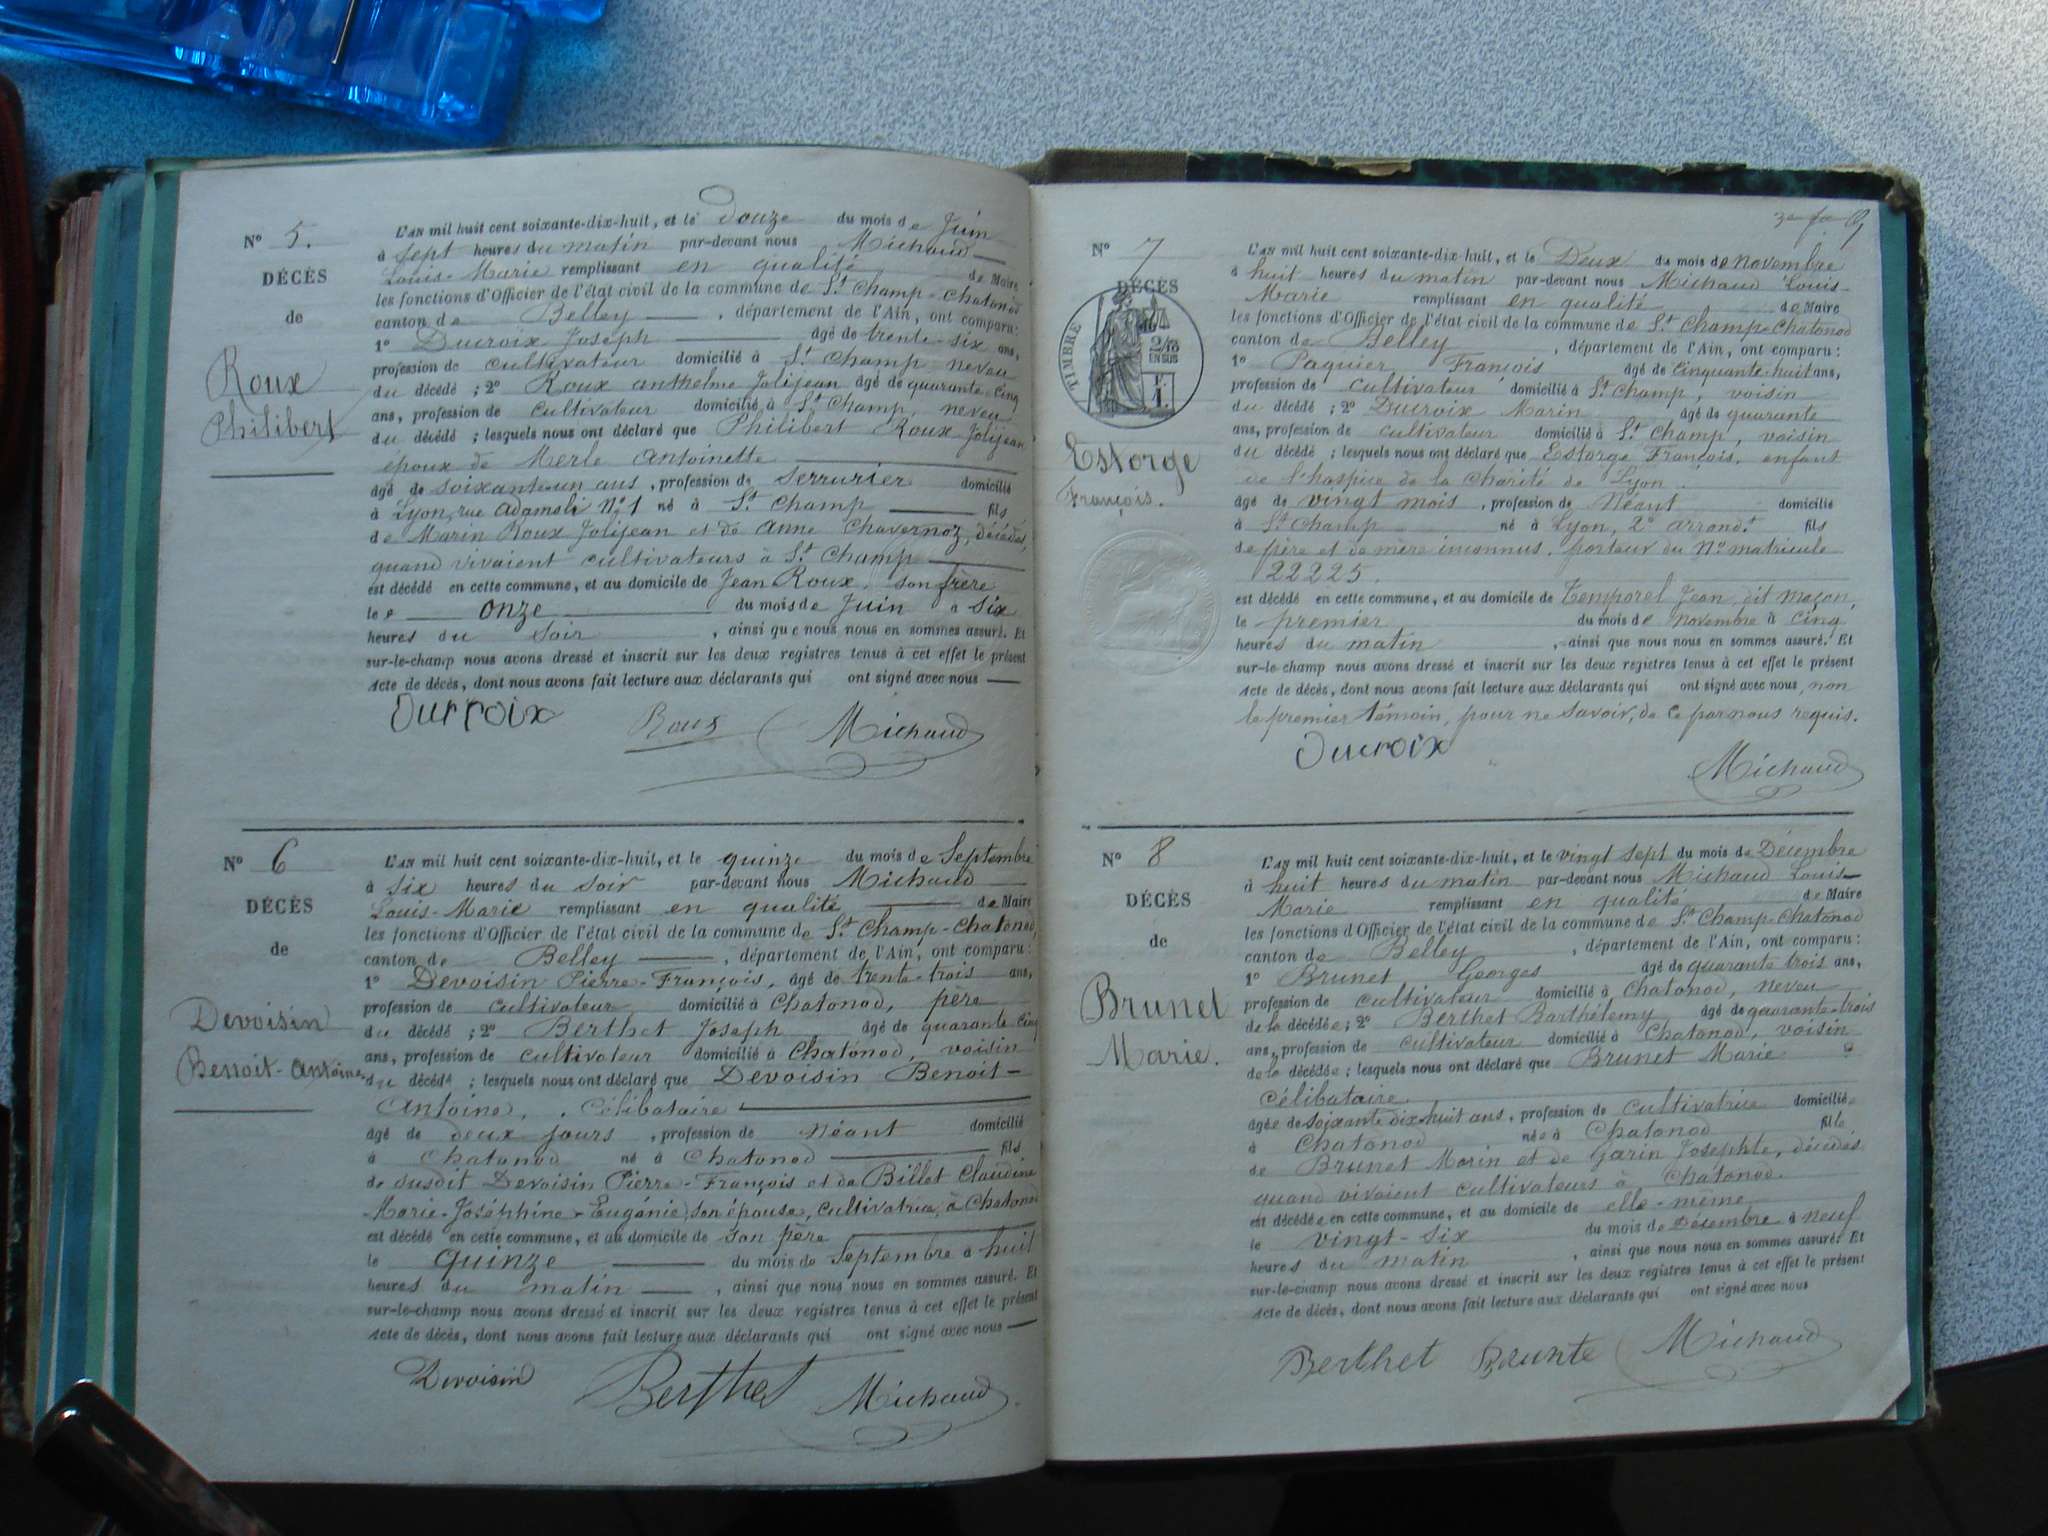 N° 5.
DÉCÈS
de
Roux
Philibert
L'AN mil huit cent soixante-dix-huit, et le douze du mois de Juin
à sept heures du matin par-devant nous Michaud
Louis-Marie remplissant en qualité de Maire
les fonctions d'Officier de l'état civil de la commune de St Champ-Chatonod
canton de Belley, département de l'Ain, ont comparu:
1° Ducroix Joseph âgé de trente-six ans,
profession de cultivateur domicilié à St Champ neveu
du décédé ; 2° Roux anthelme Jolijean âgé de quarante-cinq
ans, profession de cultivateur domicilié à St Champ, neveu
du décédé ; lesquels nous ont déclaré que Philibert Roux Jolijean
époux de Merle Antoinette
âgé de soixante un ans, profession de Serrurier domicilié
à Lyon, rue Adamoli N° 1 né à St Champ fils
de Marin Roux Jolijean et de Anne Chavernoz, décédés,
quand vivaient cultivateurs à St Champ
est décédé en cette commune, et au domicile de Jean Roux, son frère
le onze du mois de Juin à six
heures du soir, ainsi que nous nous en sommes assuré. Et
sur-le-champ nous avons dressé et inscrit sur les deux registres tenus à cet effet le présent
Acte de décès, dont nous avons fait lecture aux déclarants qui ont signé avec nous
Ducroix Roux Michaud
N° 6
DÉCÈS
de
Devoisin
Benoit-Antoine
L'AN mil huit cent soixante-dix-huit, et le quinze du mois de Septembre
à six heures du soir par-devant nous Michaud
Louis-Marie remplissant en qualité de Maire
les fonctions d'Officier de l'état civil de la commune de St Champ-Chatonod,
canton de Belley, département de l'Ain, ont comparu:
1° Devoisin Pierre-François, âgé de trente-trois ans,
profession de cultivateur domicilié à Chatonod, père
du décédé ; 2° Berthet Joseph âgé de quarante cinq
ans, profession de cultivateur domicilié à Chatonod, voisin
du décédé ; lesquels nous ont déclaré que Devoisin Benoit-
Antoine, célibataire
âgé de deux jours, profession de Néant domicilié
à Chatonod né à Chatonod fils
de susdit Devoisin Pierre-François et de Billet Claudine
Marie-Joséphine-Eugénie, son épouse, cultivatrice, à Chatonod
est décédé en cette commune, et au domicile de son père
le quinze du mois de Septembre à huit
heures du matin, ainsi que nous nous en sommes assuré. Et
sur-le-champ nous avons dressé et inscrit sur les deux registres tenus à cet effet le présent
Acte de décès, dont nous avons fait lecture aux déclarants qui ont signé avec nous
Devoisin Berthet Michaud
N° 7
DÉCÈS
TIMBRE
2/10
EN SUS
Estorge
François.
L'AN mil huit cent soixante-dix-huit, et le Deux du mois de novembre
à huit heures du matin par-devant nous Michaud Louis-
Marie remplissant en qualité de Maire
les fonctions d'Officier de l'état civil de la commune de St Champ-Chatonod
canton de Belley, département de l'Ain, ont comparu:
1° Paquier François âgé de cinquante-huit ans,
profession de cultivateur domicilié à St Champ, voisin
du décédé ; 2° Ducroix Marin âgé de quarante
ans, profession de cultivateur domicilié à St Champ, voisin
du décédé ; lesquels nous ont déclaré que Estorge François, enfant
de l'hospice de la Charité de Lyon.
âgé de vingt mois, profession de Néant domicilié
à St Champ né à Lyon, 2e arrondt fils
de père et de mère inconnus. porteur du N° matricule
22225.
est décédé en cette commune, et au domicile de Temporel Jean, dit maçon,
le premier du mois de novembre à cinq
heures du matin, ainsi que nous nous en sommes assuré. Et
sur-le-champ nous avons dressé et inscrit sur les deux registres tenus à cet effet le présent
Acte de décès, dont nous avons fait lecture aux déclarants qui ont signé avec nous, non
le premier témoin, pour ne savoir, de ce par nous requis.
Ducroix Michaud
N° 8
DÉCÈS
de
Brunet
Marie.
L'AN mil huit cent soixante-dix-huit, et le vingt sept du mois de Décembre
à huit heures du matin par-devant nous Michaud Louis-
Marie remplissant en qualité de Maire
les fonctions d'Officier de l'état civil de la commune de St Champ-Chatonod
canton de Belley, département de l'Ain, ont comparu:
1° Brunet Georges âgé de quarante trois ans,
profession de cultivateur domicilié à Chatonod, neveu
de la décédée ; 2° Berthet Barthélemy âgé de quarante-trois
ans, profession de cultivateur domicilié à Chatonod, voisin
de la décédée ; lesquels nous ont déclaré que Brunet Marie
célibataire
âgée de soixante dix-huit ans, profession de cultivatrice domiciliée
à Chatonod née à Chatonod fille
de Brunet Marin et de Garin Josephte, décédés
quand vivaient cultivateurs à Chatonod.
est décédée en cette commune, et au domicile de elle-même
le vingt-six du mois de Décembre à neuf
heures du matin, ainsi que nous nous en sommes assuré. Et
sur-le-champ nous avons dressé et inscrit sur les deux registres tenus à cet effet le présent
Acte de décès, dont nous avons fait lecture aux déclarants qui ont signé avec nous
Berthet Brunte Michaud